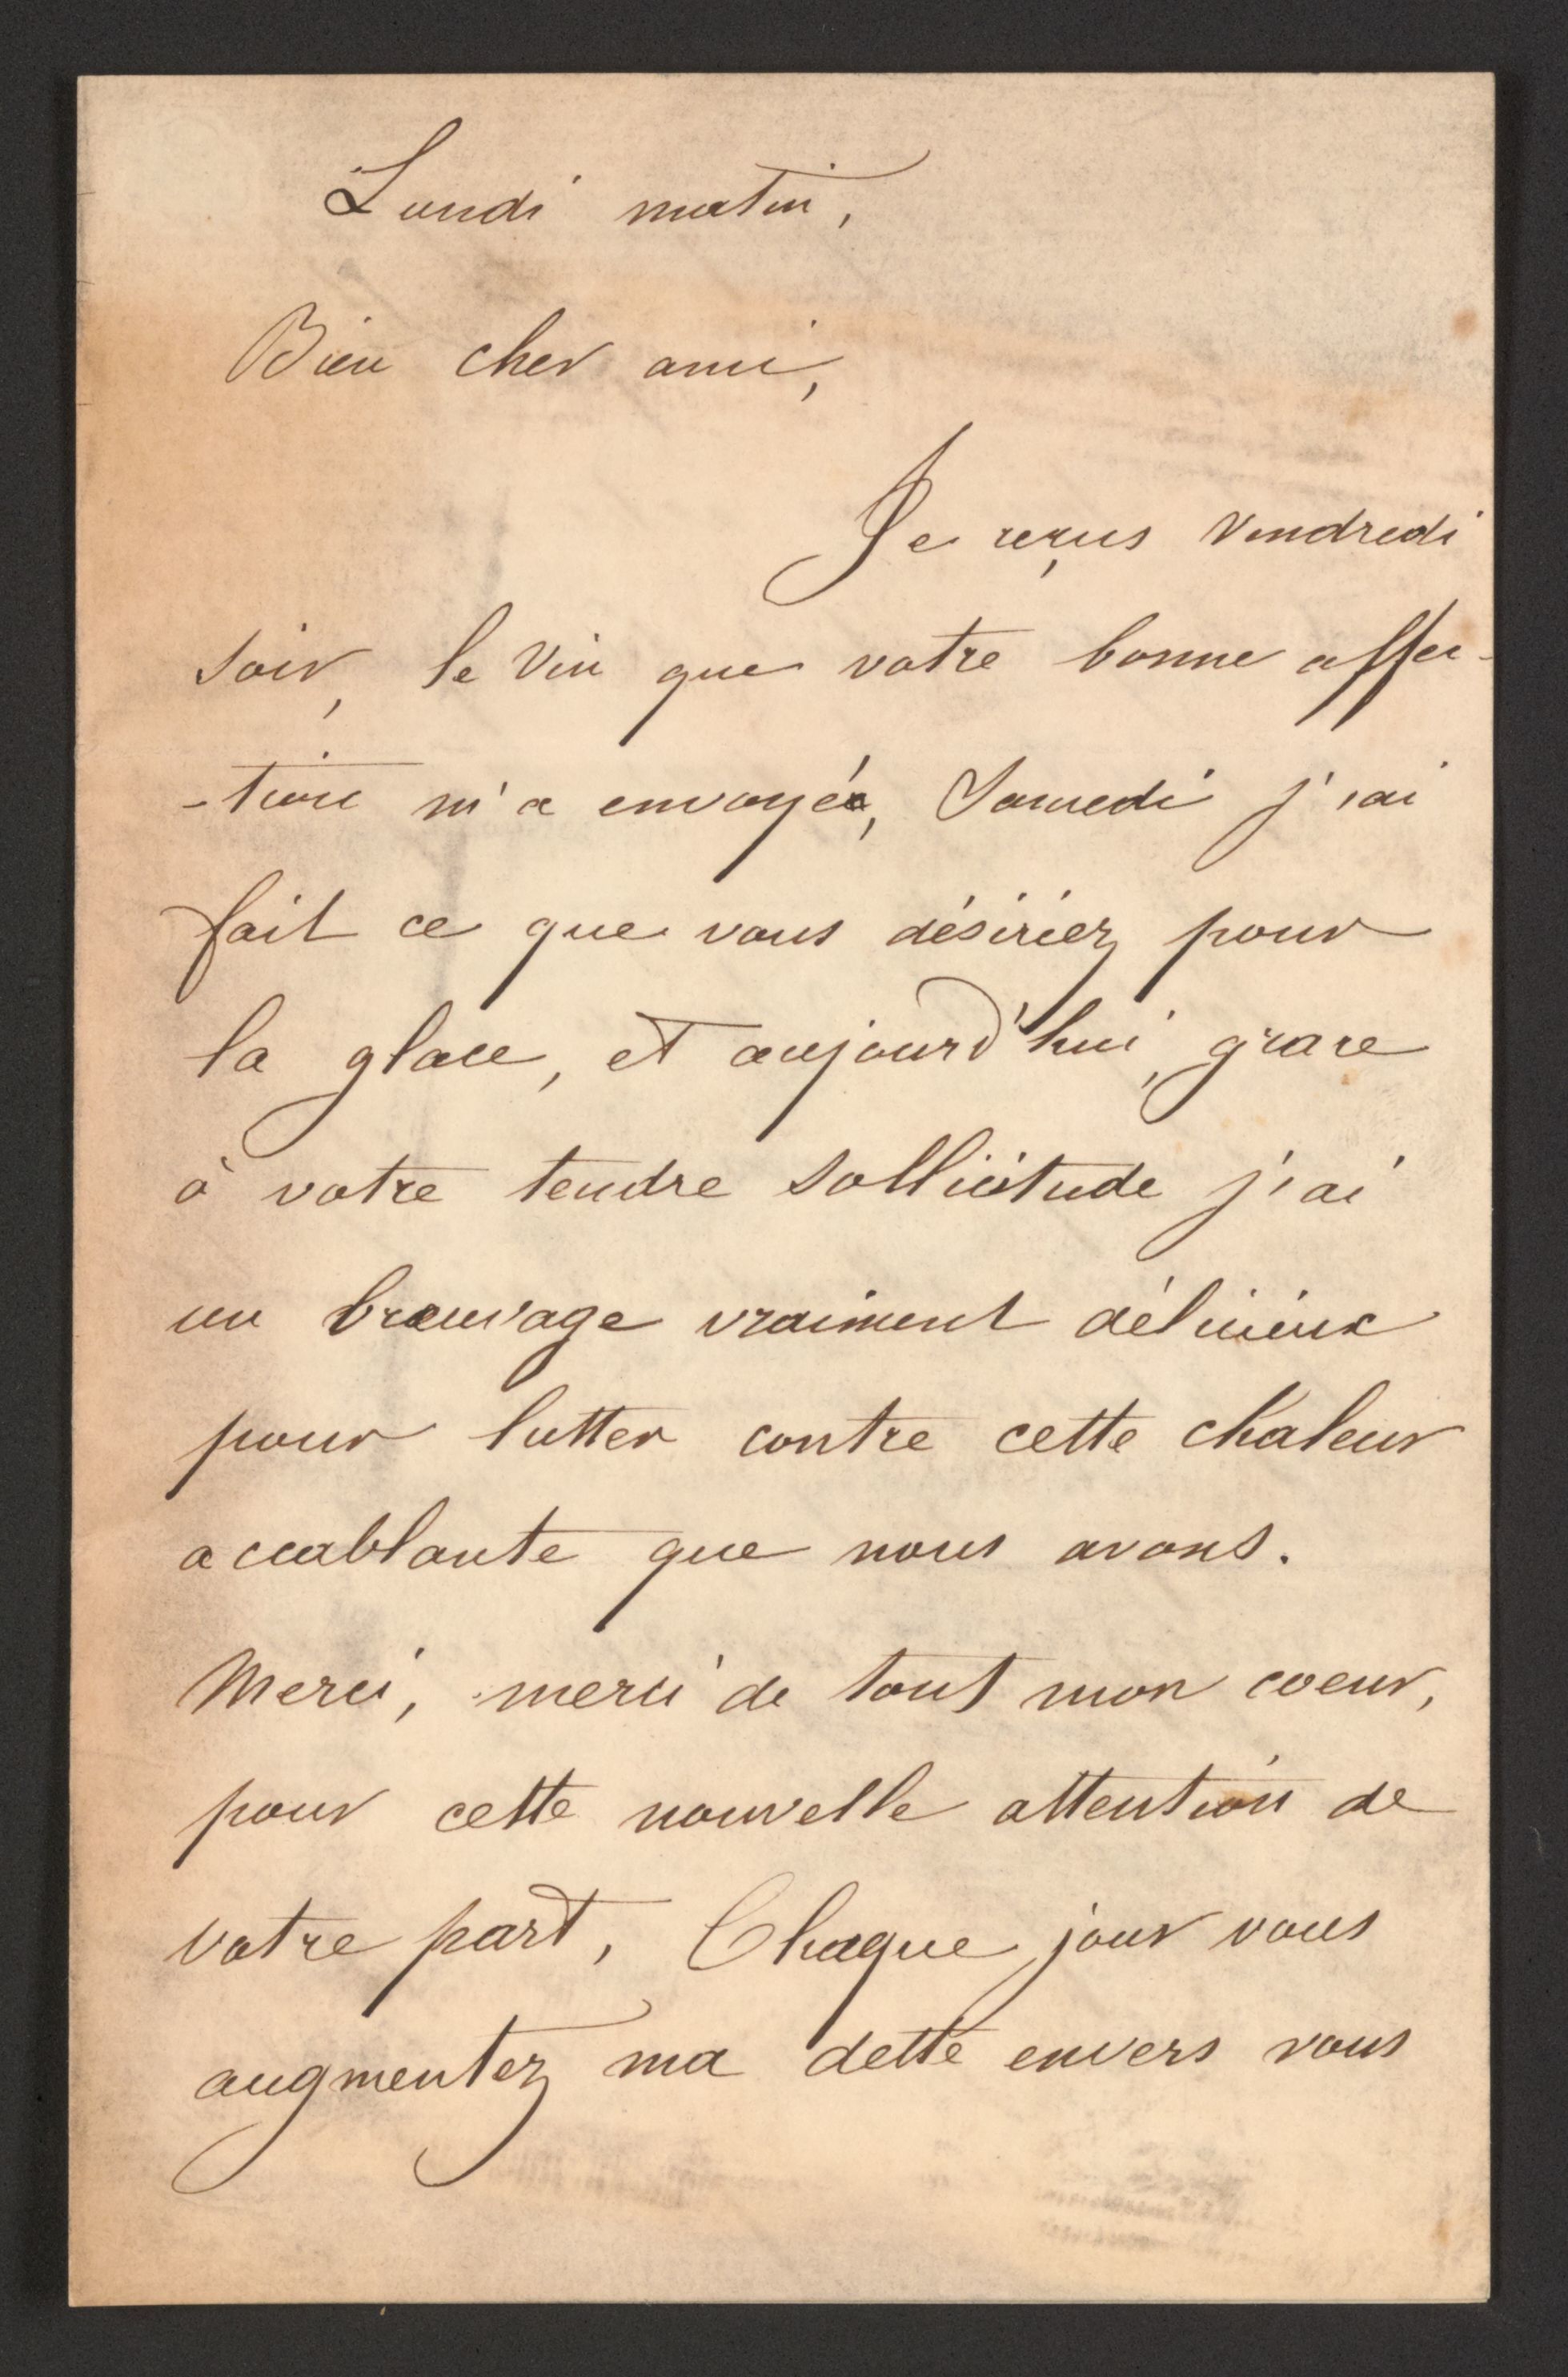 Lundi matin,
Bien cher ami,
Je reçus Vendredi
soir, le Vin que votre bonne affec-
-tion m'a envoyé, Samedi j'ai
fait ce que vous désiriez pour
la glace, et aujourd'hui, grace
à votre tendre sollicitude j'ai
un breuvage vraiment délicieux
pour lutter contre cette chaleur
accablante que nous avons.
Merci, merci de tout mon coeur,
pour cette nouvelle attention de
votre part, Chaque jour vous
augmentez ma dette envers vous